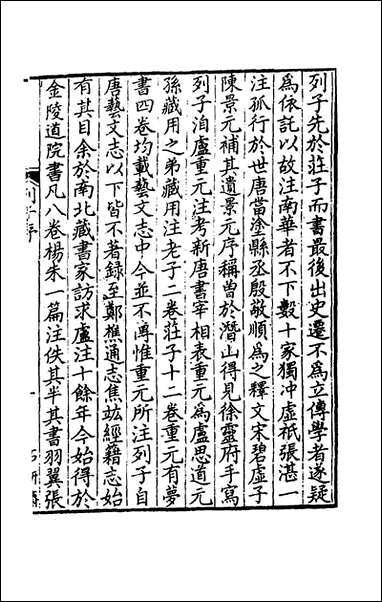 列子先於莊子而書最後出史遷不為立傳學者遂疑
為依託以故注南華者不下數十家獨沖虛祇張湛一
注孤行於世唐當塗縣丞殷敬順為之釋文宋碧虛子
陳景元補其遺景元序稱曾於潛山得見徐靈府手寫
列子洎盧重元注考新唐書宰相表重元為盧思道元
孫藏用之弟藏用注老子二卷莊子十二卷重元有夢
書四卷均載藝文志中今並不傳惟重元所注列子自
唐藝文志以下皆不著録至鄭樵通志焦竑經籍志始
有其目余於南北藏書家訪求盧注十餘年今始得於
金陵道院書凡八卷楊朱一篇注佚其半其書羽翼張
列子序
一